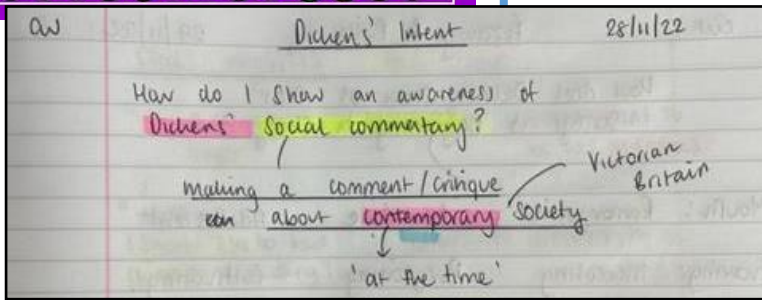 CW Dickens' Intent 28/11/22
How do I show an awareness of
Dickens' Social commentary?
making a comment/critique
about contemporary society
Victorian
Britain
'at the time'